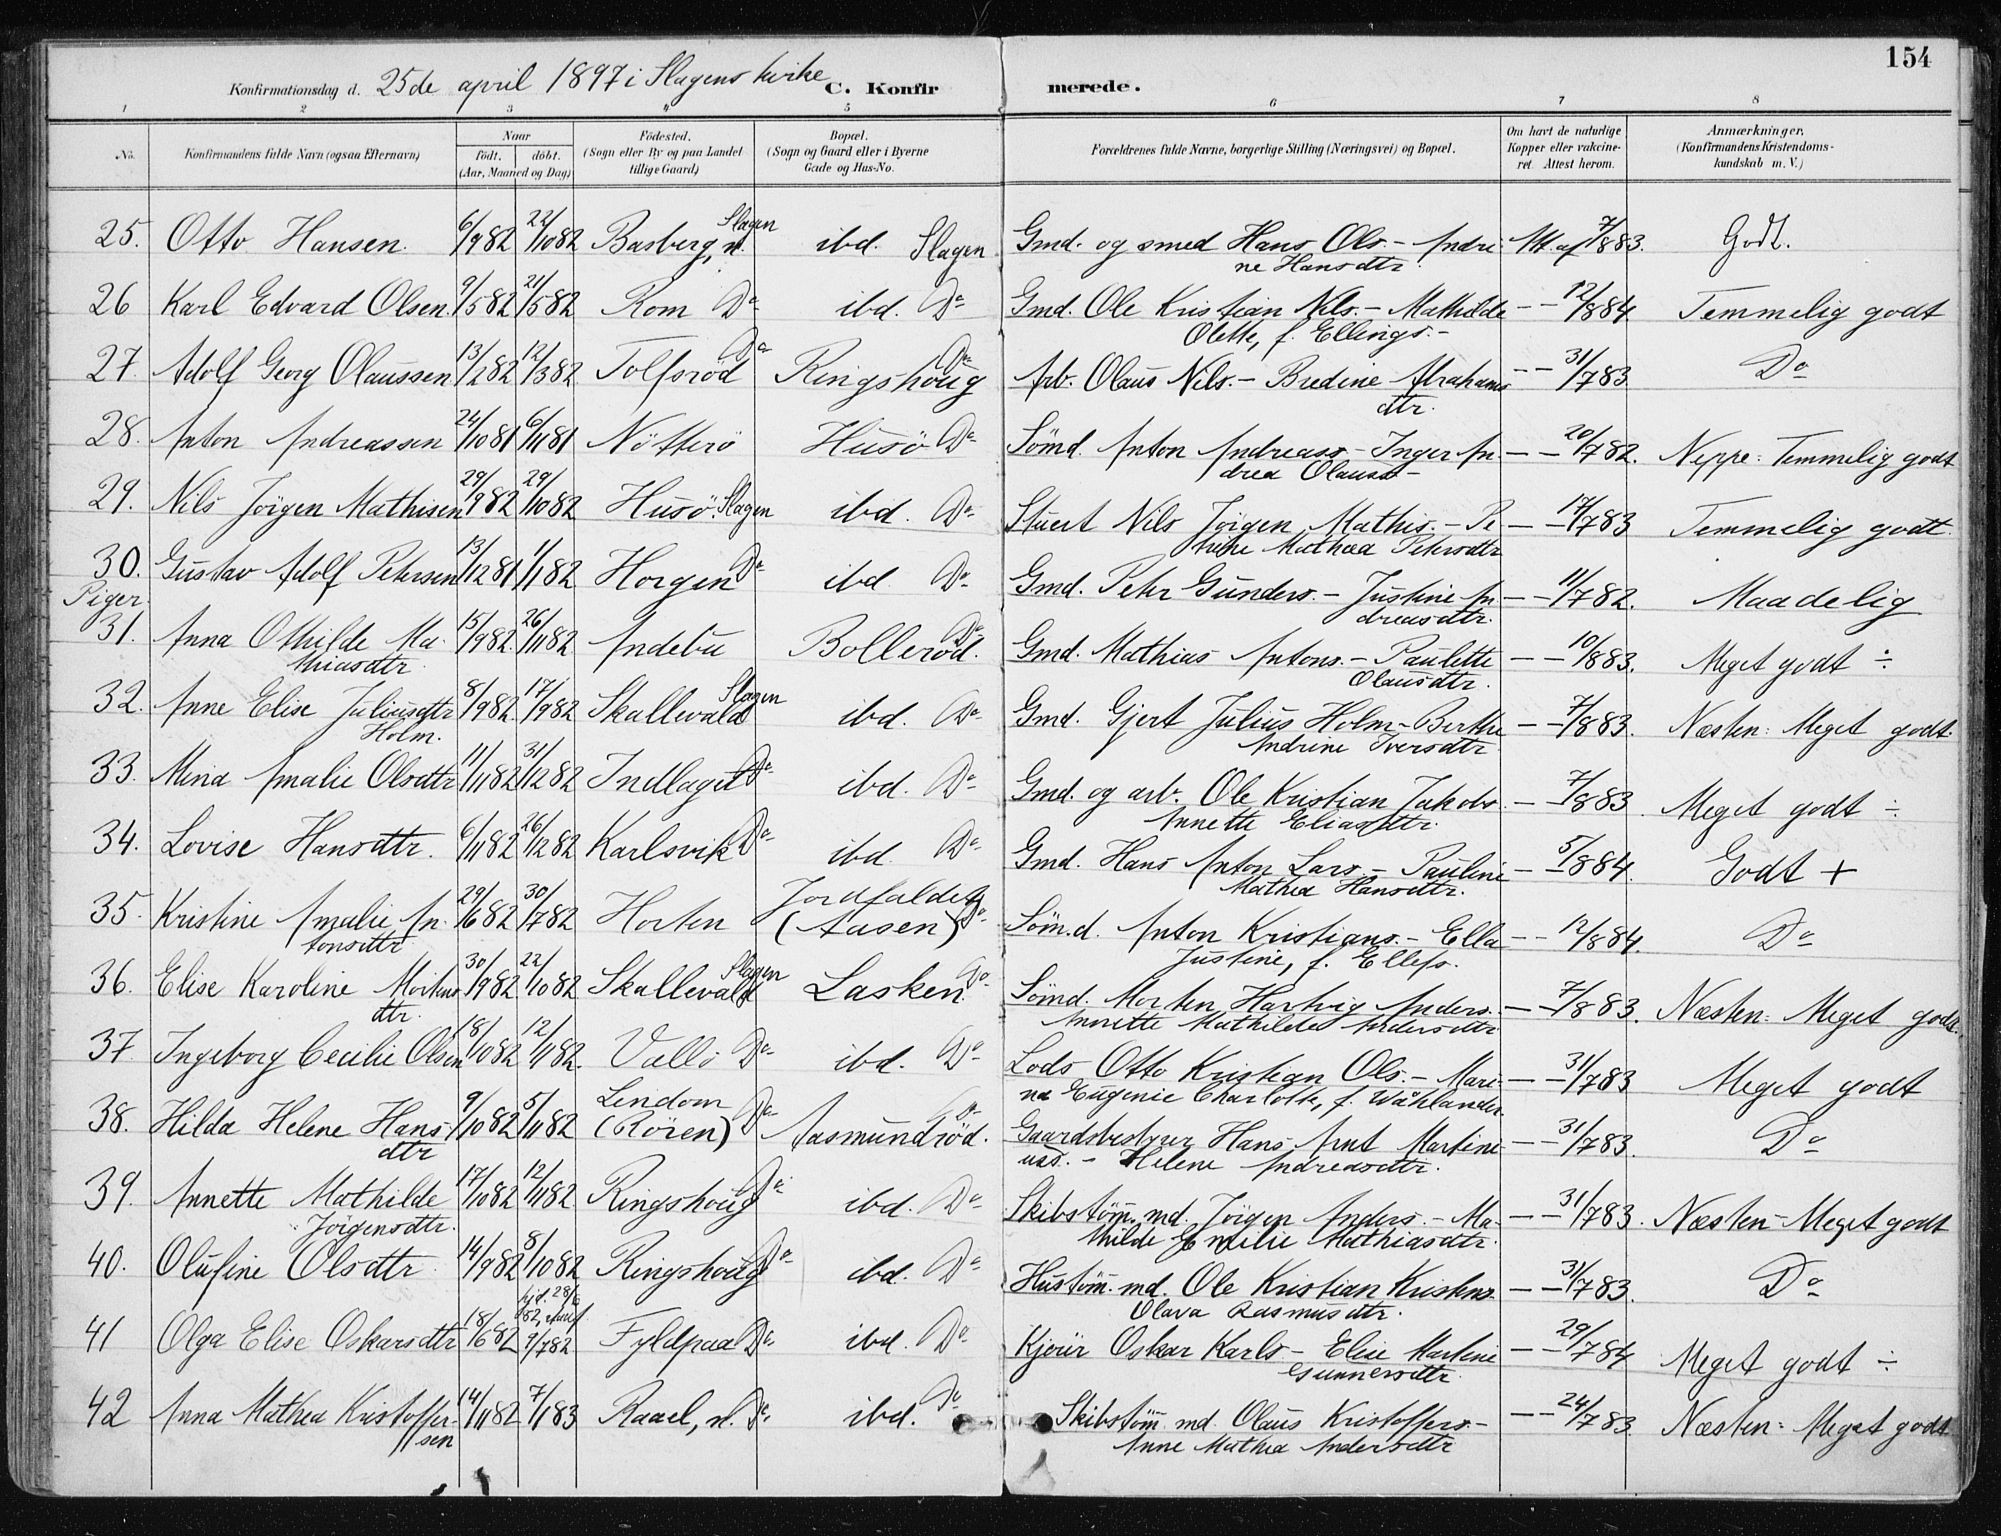 154
Konfirmationsdag d. 25de april 1897 i Slagens kirke C. Konfirmerede.
1 2 3 4 5 6 7 8
No. Konfirmandens fulde Navn (ogsaa Efternavn) Naar født. døbt. (Aar, Maaned og Dag) Fødested. (Sogn eller By og paa Landet tillige Gaard) Bopæl. (Sogn og Gaard eller i Byerne Gade og Hus-No. Forældrenes fulde Navne, borgerlige Stilling (Næringsvei) og Bopæl. Om havt de naturlige Kopper eller vakcineret. Attest herom. Anmærkninger. (Konfirmandens Kristendomskundskab m. V.)
25. Otto Hansen. 6/9 82 22/10 82 Basberg, n. Slagen ibd. Slagen Gmd. og smed Hans Ols. - Andri- 7/8 83. Godt.
ne Hansdtr.
26 Karl Edvard Olsen. 9/5 82 21/5 82 Rom Do ibd. Do Gmd. Ole Kristian Nils. - Mathilde - - 12/8 84. Temmelig godt
Olette, f. Ellings. -
27. Adolf Georg Olaussen 13/2 82 12/3 82 Tolfsrød Do Ringshoug Do Arb. Olaus Nils. - Bredine Abrahams - - 31/7 83. Do
dtr.
28. Anton Andreassen 24/10 81 6/11 81 Nøtterø Husø Do Sømd. Anton Andreass - Inger An- - - 20/7 82. Neppe: Temmelig godt
drea Olauss -
29. Nils Jørgen Mathisen 29/9 82 29/10 82 Husø. Slagen ibd. Do Stuert Nils Jørgen Mathis. - Pe - - 17/7 83 Temmelig godt.
trine Mathea Petersdtr
30. Gustav Adolf Petersen 13/12 81 1/1 82 Horgen Do ibd. Do Gmd. Peter Gunders. - Justine An - - 11/7 82. Maadelig
dreasdtr.
Piger.
31. Anna Othilde Ma- 15/9 82. 26/11 82 Andebu Bollerød. Do Gmd. Mathias Antons. - Paulette - - 10/8 83. Meget godt ÷
thiasdtr. Olausdtr.
32. Anne Elise Juliusdtr 8/9 82. 17/9 82 Skallevald Slagen ibd. Do Gmd. Gjert Julius Holm - Berthe - - 7/8 83. Næsten: Meget godt.
Holm. Andrine Iversdtr
33. Mina Amalie Olsdtr 11/11 82 31/12 82 Indlaget Do ibd. Do Gmd. og arb. Ole Kristian Jakobs. - - 7/8 83 Meget godt ÷
Annette Eliasdtr.
34. Lovise Hansdtr. 6/11 82 26/12 82 Karlsvik Do ibd. Do Gmd. Hans Anton Lars - Pauline - - 5/8 84. Godt +
Mathea Hansdtr.
35. Kristine Amalie An- 29/6 82 30/7 82 Horten Jordfaldet (Aasen) Do Søm.d. Anton Kristians. - Ella - - 12/8 84. Do
tonsdtr Justine, f. Ellefs.
36. Elise Karoline Mortens 30/9 82 22/10 82 Skallevald Slagen Lasken. Do Sømd. Morten Hartvig Anders. - - 7/8 83. Næsten: Meget godt.
dtr. Annette Mathilde Andersdtr
37 Ingeborg Cecilie Olsen 18/10 82 12/11 82. Vallø Do ibd. Do Lods Otto Kristian Ols. - Mari- - - 31/7 83 Meget godt
na Eugenie Charlotte, f. Wåhlander
38. Hilda Helene Hans- 9/10 82 5/11 82 Lendom (Røren) Do Aasmundrød. Do Gaardsbestyrer Hans Arnt Martini - - 31/7 83. Do
dtr uss. - Helene Andreasdtr.
39. Annette Mathilde 17/10 82 12/11 82. Ringshoug Do ibd. Do Skibstøm. md. Jørgen Anders. - Ma- - - 31/7 83. Næsten - Meget godt
Jørgensdtr. thilde Emelie Mathiasdtr.
40. Olufine Olsdtr. 14/9 82 8/10 82 Ringshoug Do ibd. Do Hustøm. md. Ole Kristian Kristens. - - 31/7 83. Do
Olava Rasmusdtr.
41 Olga Elise Oskarsdtr 18/6 82 hjd. 28/6 82, 9/7 82 Fyldpaa Do ibd. Do Kjørir Oskar Karls - Elise Martine - - 29/7 84. Meget godt ÷
Gunnersdtr.
42 Anna Mathea Kristoffer- 14/11 82 7/1 83 Raael, n. Do ibd. Do Skibstøm md. Olaus Kristoffers. - - - 24/7 83. Næsten: Meget godt
sen Anne Mathea Andersdtr